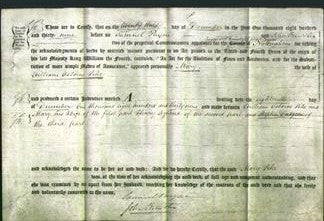 These are to Certify, that on the twenty third day of December in the Year One thousand eight hundred
and thirty nine before us Samuel Payne and
two of the perpetual Commissioners appointed for the County of Nottingham for taking
the acknowledgments of deeds by married women pursuant to an Act passed in the Third and Fourth Years of the reign of
his late Majesty King William the Fourth, intituled, "An Act for the Abolition of Fines and Recoveries, and for the Substi-
tution of more simple Modes of Assurance," appeared personally Mary the wife of
William
and produced a certain Indenture marked A bearing date the eighteenth day
of December one thousand eight hundred and thirty nine and made between William
Mary his wife of the first part of the second part and Stephen
of the third part
and acknowledged the same to be her act and deed: And we do hereby certify, that the said Mary
was, at the time of her acknowledging the said deed, of full age and competent understanding, and
that she was examined by us apart from her husband, touching her knowledge of the contents of the said deed, and that she freely
and voluntarily consented to the same.
Samuel Payne
John